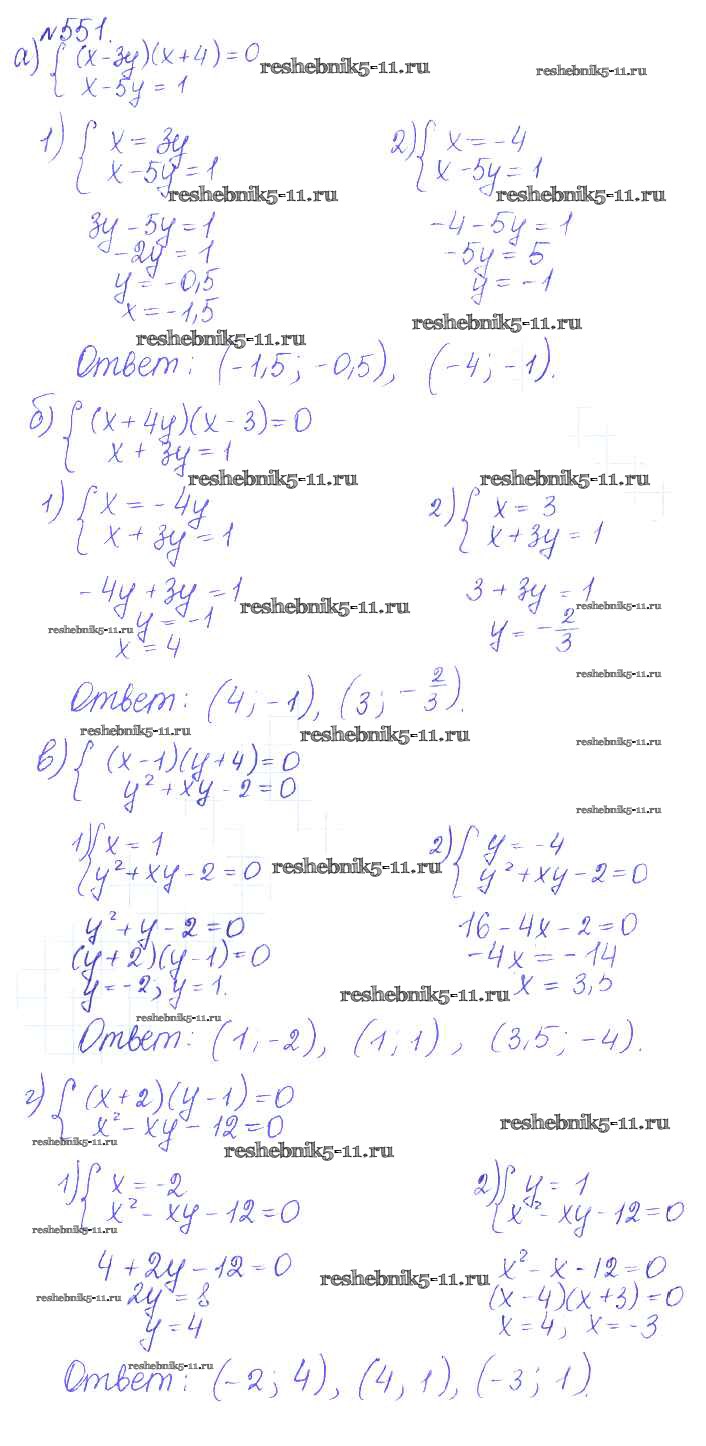 №551.
а) { (x-3y)(x+4)=0
x-5y=1
reshebnik5-11.ru
reshebnik5-11.ru
1) { x=3y
x-5y=1
2) { x=-4
x-5y=1
reshebnik5-11.ru
reshebnik5-11.ru
3y-5y=1
-2y=1
y=-0,5
x=-1,5
-4-5y=1
-5y=5
y=-1
reshebnik5-11.ru
reshebnik5-11.ru
Ответ: (-1,5; -0,5), (-4; -1).
б) { (x+4y)(x-3)=0
x+3y=1
reshebnik5-11.ru
reshebnik5-11.ru
1) { x=-4y
x+3y=1
2) { x=3
x+3y=1
-4y+3y=1
y=-1
x=4
reshebnik5-11.ru
reshebnik5-11.ru
3+3y=1
y=-2/3
reshebnik5-11.ru
reshebnik5-11.ru
Ответ: (4; -1), (3; -2/3).
reshebnik5-11.ru
reshebnik5-11.ru
reshebnik5-11.ru
в) { (x-1)(y+4)=0
y²+xy-2=0
reshebnik5-11.ru
1) { x=1
y²+xy-2=0
reshebnik5-11.ru
2) { y=-4
y²+xy-2=0
y²+y-2=0
(y+2)(y-1)=0
y=-2; y=1.
16-4x-2=0
-4x=-14
x=3,5
reshebnik5-11.ru
reshebnik5-11.ru
Ответ: (1; -2), (1; 1), (3,5; -4).
г) { (x+2)(y-1)=0
x²-xy-12=0
reshebnik5-11.ru
reshebnik5-11.ru
reshebnik5-11.ru
1) { x=-2
x²-xy-12=0
2) { y=1
x²-xy-12=0
reshebnik5-11.ru
4+2y-12=0
2y=8
y=4
reshebnik5-11.ru
reshebnik5-11.ru
x²-x-12=0
(x-4)(x+3)=0
x=4, x=-3
reshebnik5-11.ru
Ответ: (-2; 4), (4, 1), (-3; 1).